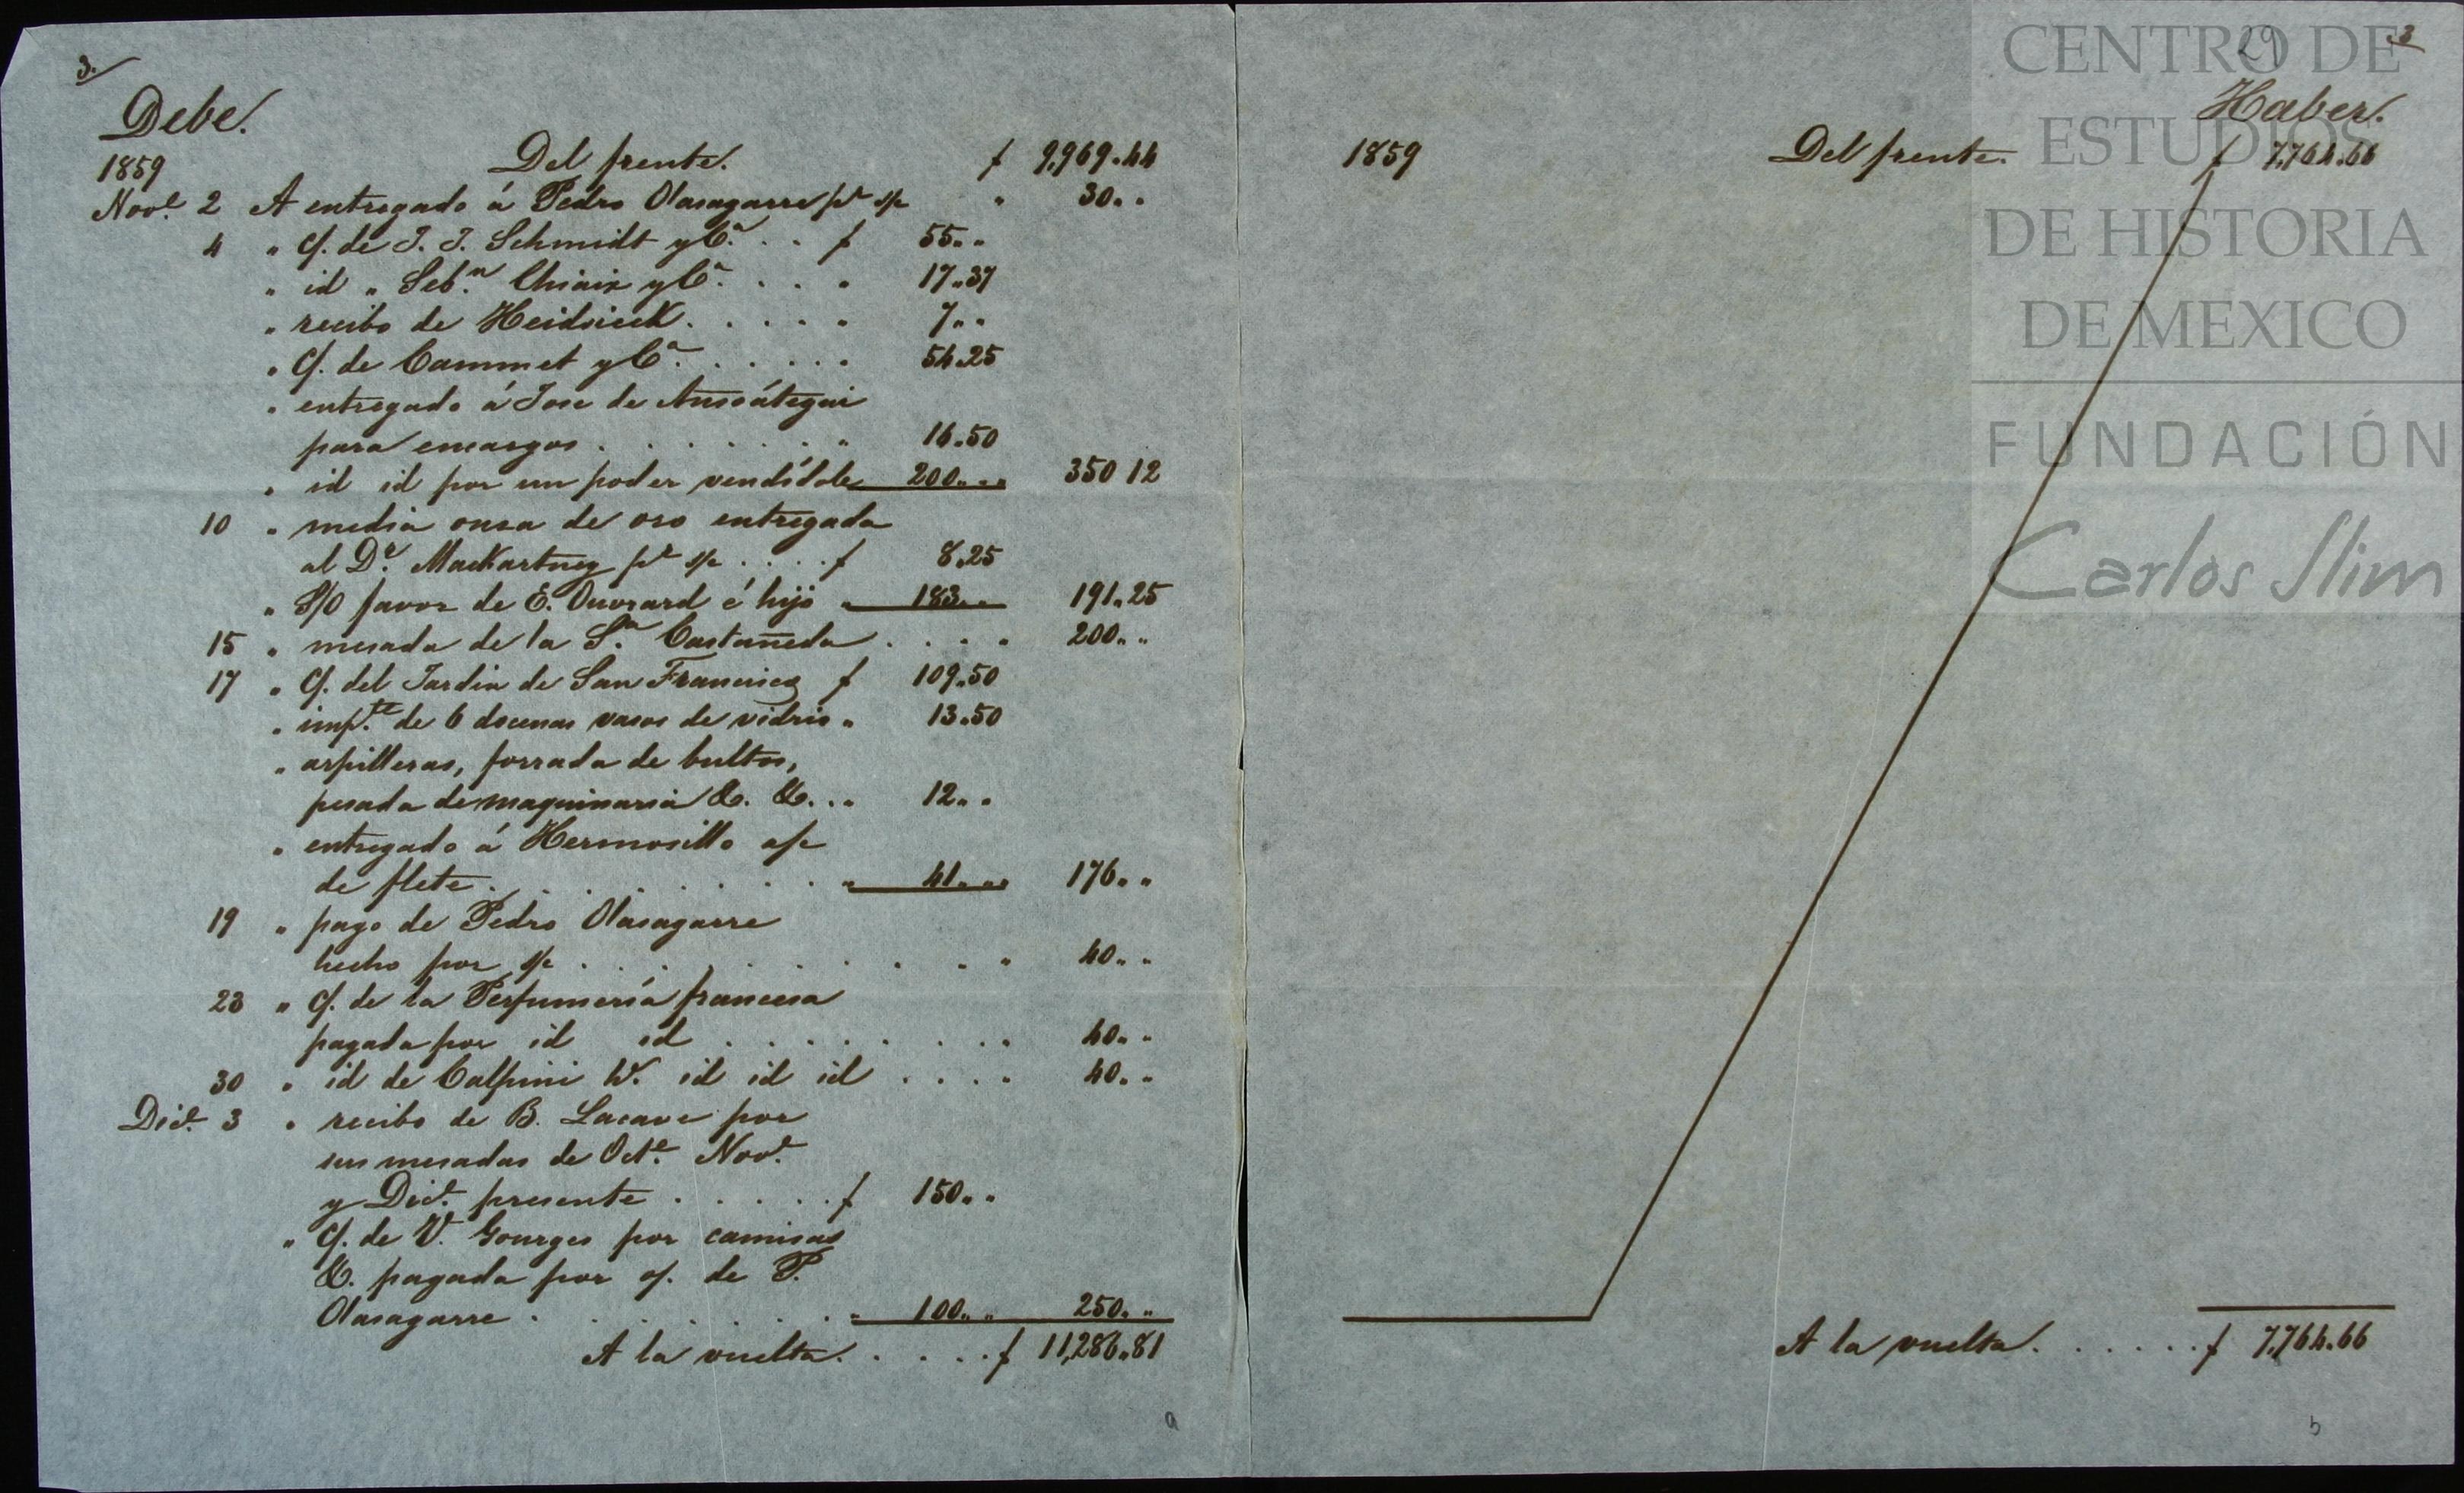 3.
Debe.
1859 Del frente. $ 9,969.44
Nov.e 2 A entregado á Pedro Olasagarre pr s/c " 30 " "
4 " C/. de J. J. Schmidt y Ca. . . $ 55 " "
" id " Seb.n Chiaix y Ca. . . . " 17 " 37
" recibo de Heidsieck. . . . . " 7 " "
" C/. de Cammet y Ca. . . . . . " 54.25
" entregado á Jose de Ansoátegui
para encargos . . . . . . . " 16.50
" id id por un poder vendídole 200 " " 350 12
10 " media onza de oro entregada
al Dr. MacKartney pr s/c . . . . $ 8.25
" S/O favor de E. Ouvrard é hijo " 183 " " 191.25
15 " mesada de la Sra. Castañeda . . . . " 200 " "
17 " C/. del Jardin de San Francisco $ 109.50
" imp.te de 6 docenas vasos de vidrio " 13.50
" arpilleras, forrada de bultos,
pesada de maquinaria &. &. . . " 12 " "
" entregado á Hermosillo a/c
de flete . . . . . . . . " 41 " " 176 " "
19 " pago de Pedro Olasagarre
hecho por s/c . . . . . . . . . . " 40 " "
23 " C/. de la Perfumería francesa
pagada por id id . . . . . . . . " 40 " "
30 " id de Calpini W. id id id . . . . " 40 " "
Dic.e 3 " recibo de B. Lacave por
sus mesadas de Oct.e Nov.e
y Dic.e presente . . . . . $ 150 " "
" C/. de V. Gourges por camisas
&. pagada por o/. de P.
Olasagarre . . . . . . . " 100 " " 250 " "
A la vuelta. . . . . $ 11,286.81
a
29 3
Haber.
1859 Del frente. $ 7,764.66
A la vuelta. . . . . . $ 7,764.66
b
CENTRO DE
ESTUDIOS
DE HISTORIA
DE MEXICO
FUNDACIÓN
Carlos Slim